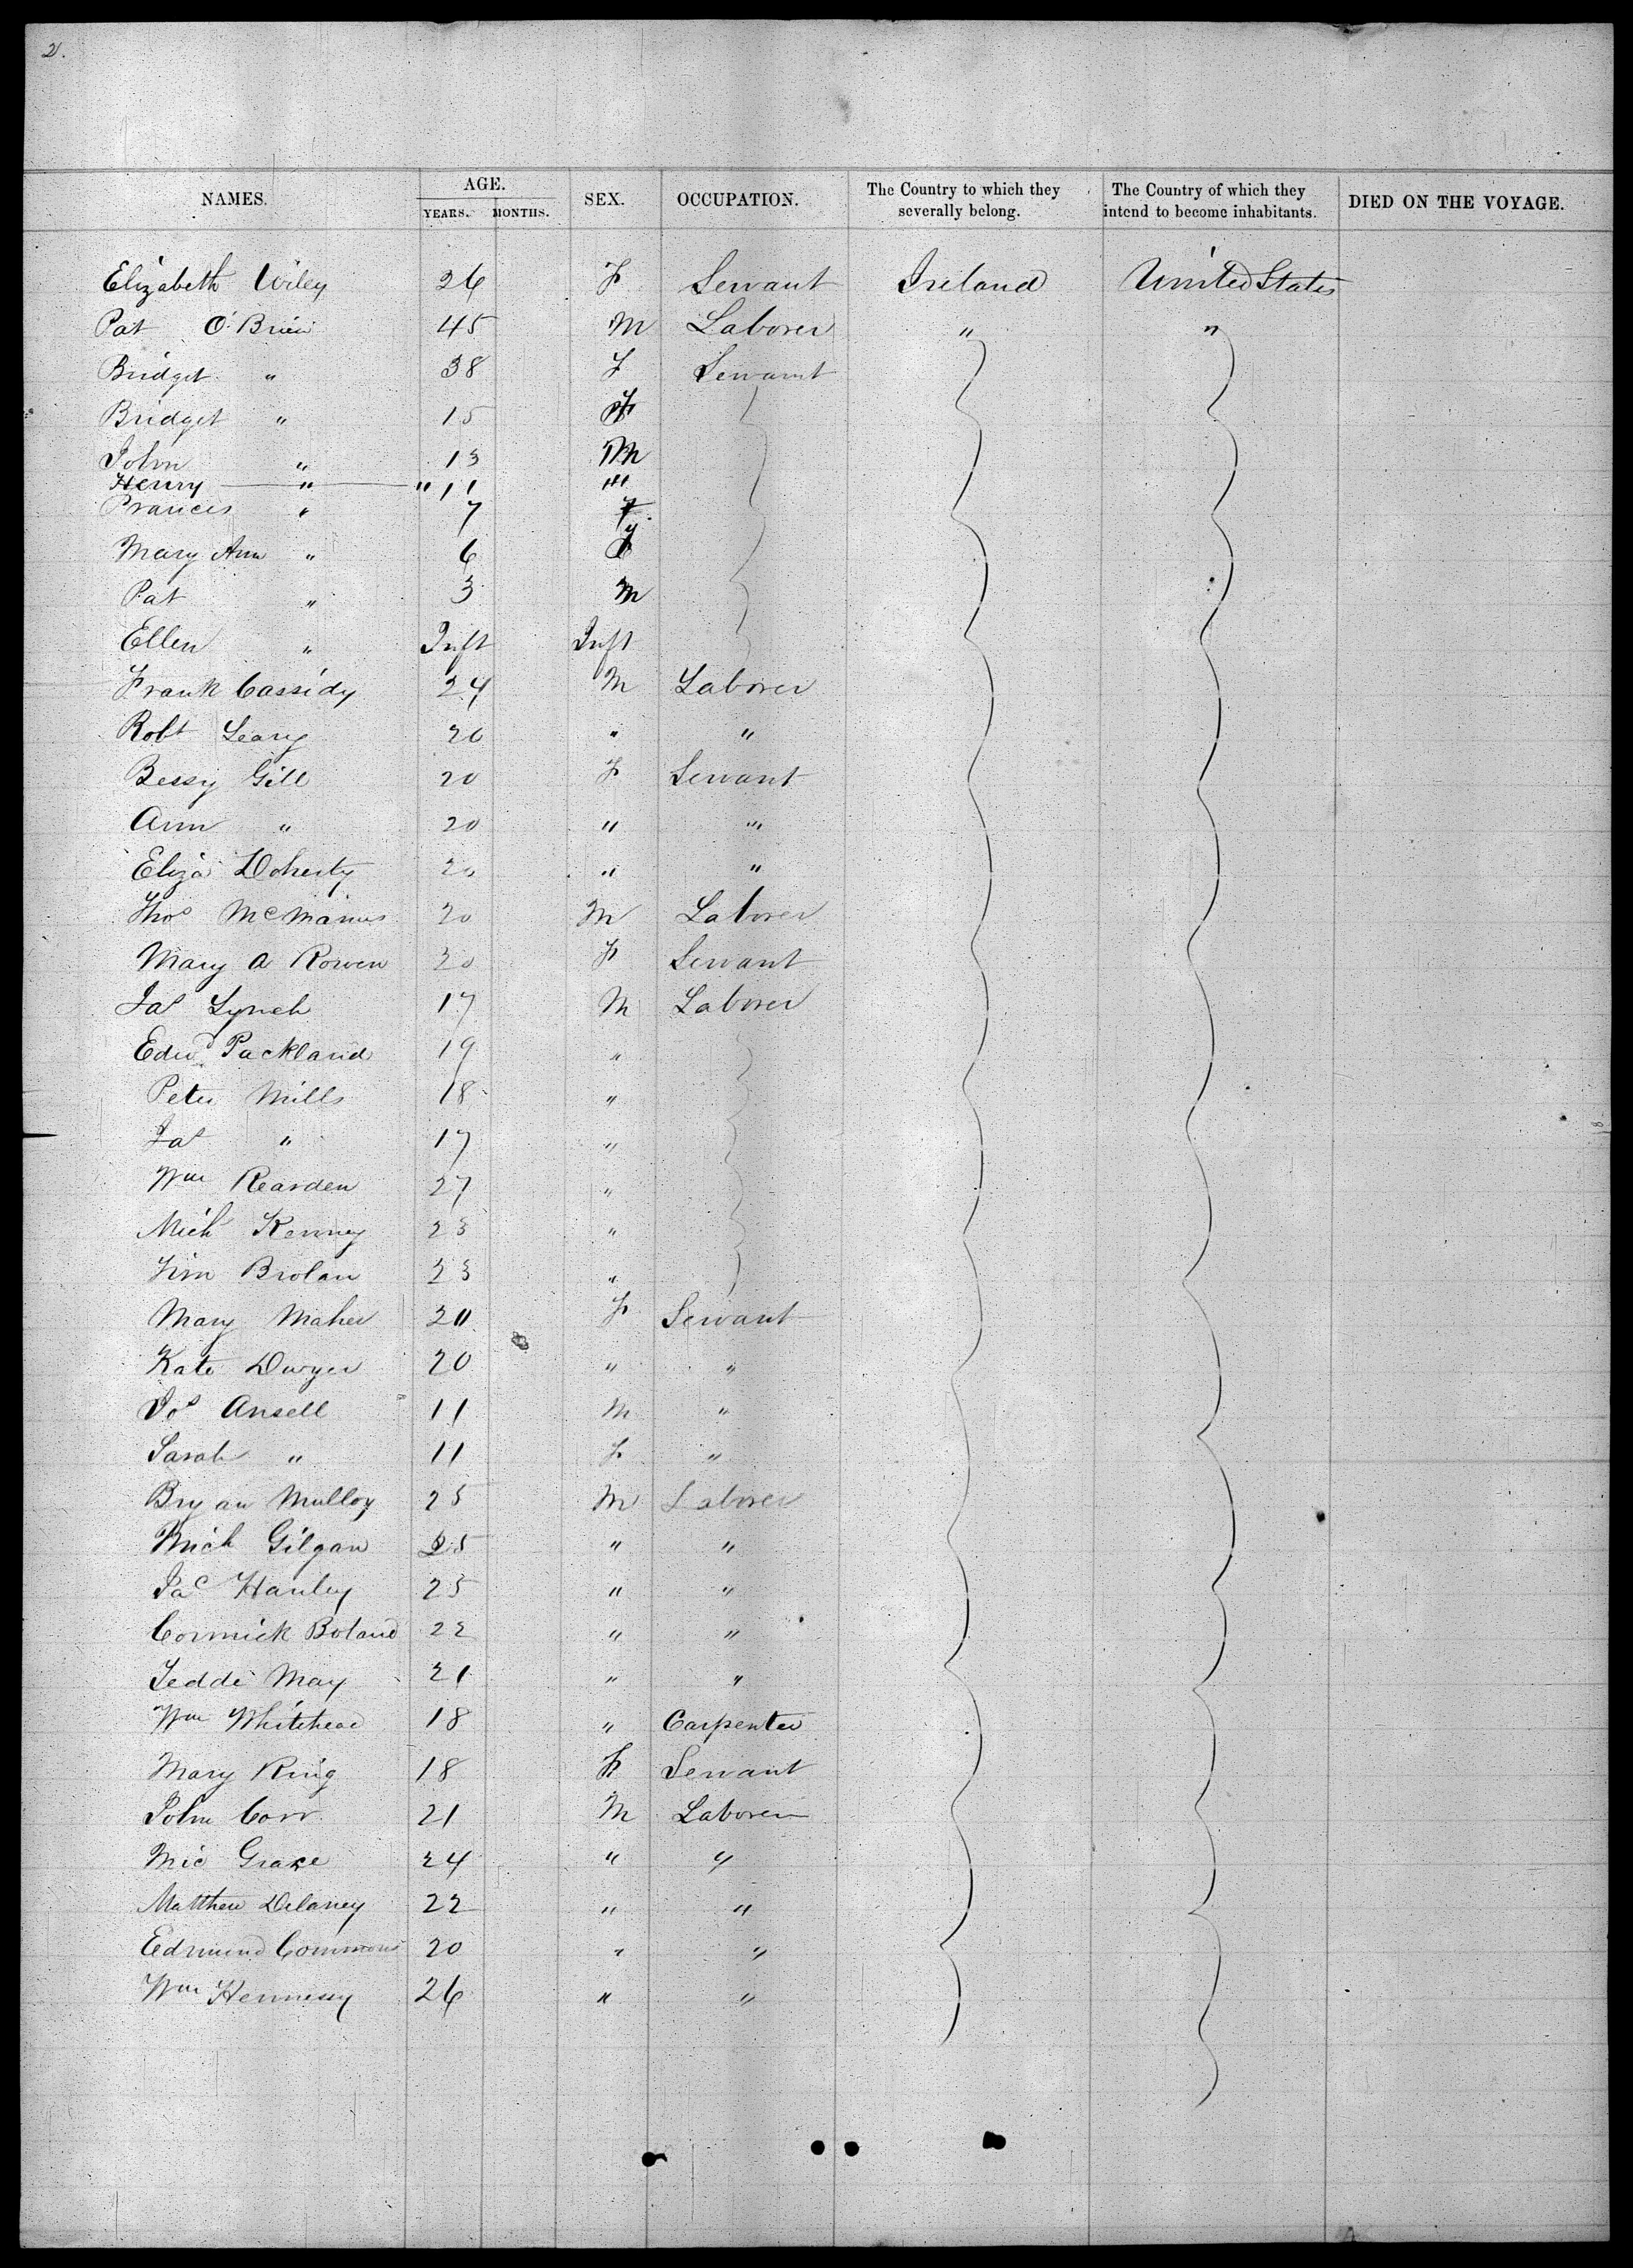 2.
NAMES. AGE. SEX. OCCUPATION. The Country to which they severally belong. The Country of which they intend to become inhabitants. DIED ON THE VOYAGE.
YEARS. MONTHS.
Elizabeth Wiley 26 F Servant Ireland United States
Pat O'Brien 45 M Laborer " "
Bridget " 38 F Servant
Bridget " 15 F
John " 13 M
Henry " " 11 "
Frances " 7 F
Mary Ann " 6 F
Pat " 3 M
Ellen " Inft Inft
Frank Cassidy 24 M Laborer
Robt Leary 20 " "
Bessy Gill 20 F Servant
Ann " 20 " "
Eliza Doherty 20 " "
Thos McManus 20 M Laborer
Mary A Rowen 20 F Servant
Jas Lynch 17 M Laborer
Edwd Packland 19 "
Peter Mills 18 "
Jas " 17 "
Wm Rearden 27 "
Mich Kenney 23 "
Tim Brolan 23 "
Mary Maher 20 F Servant
Kate Dwyer 20 " "
Jos Ansell 11 M "
Sarah " 11 F "
Bryan Mulloy 25 M Laborer
Mich Gilgan 25 " "
Jas Hanley 25 " "
Cormick Boland 22 " "
Teddi May 21 " "
Wm Whitehead 18 " Carpenter
Mary Ring 18 F Servant
John Corr 21 M Laborer
Mic Grace 24 " "
Matthew Delaney 22 " "
Edmund Commons 20 " "
Wm Hennessy 26 " "